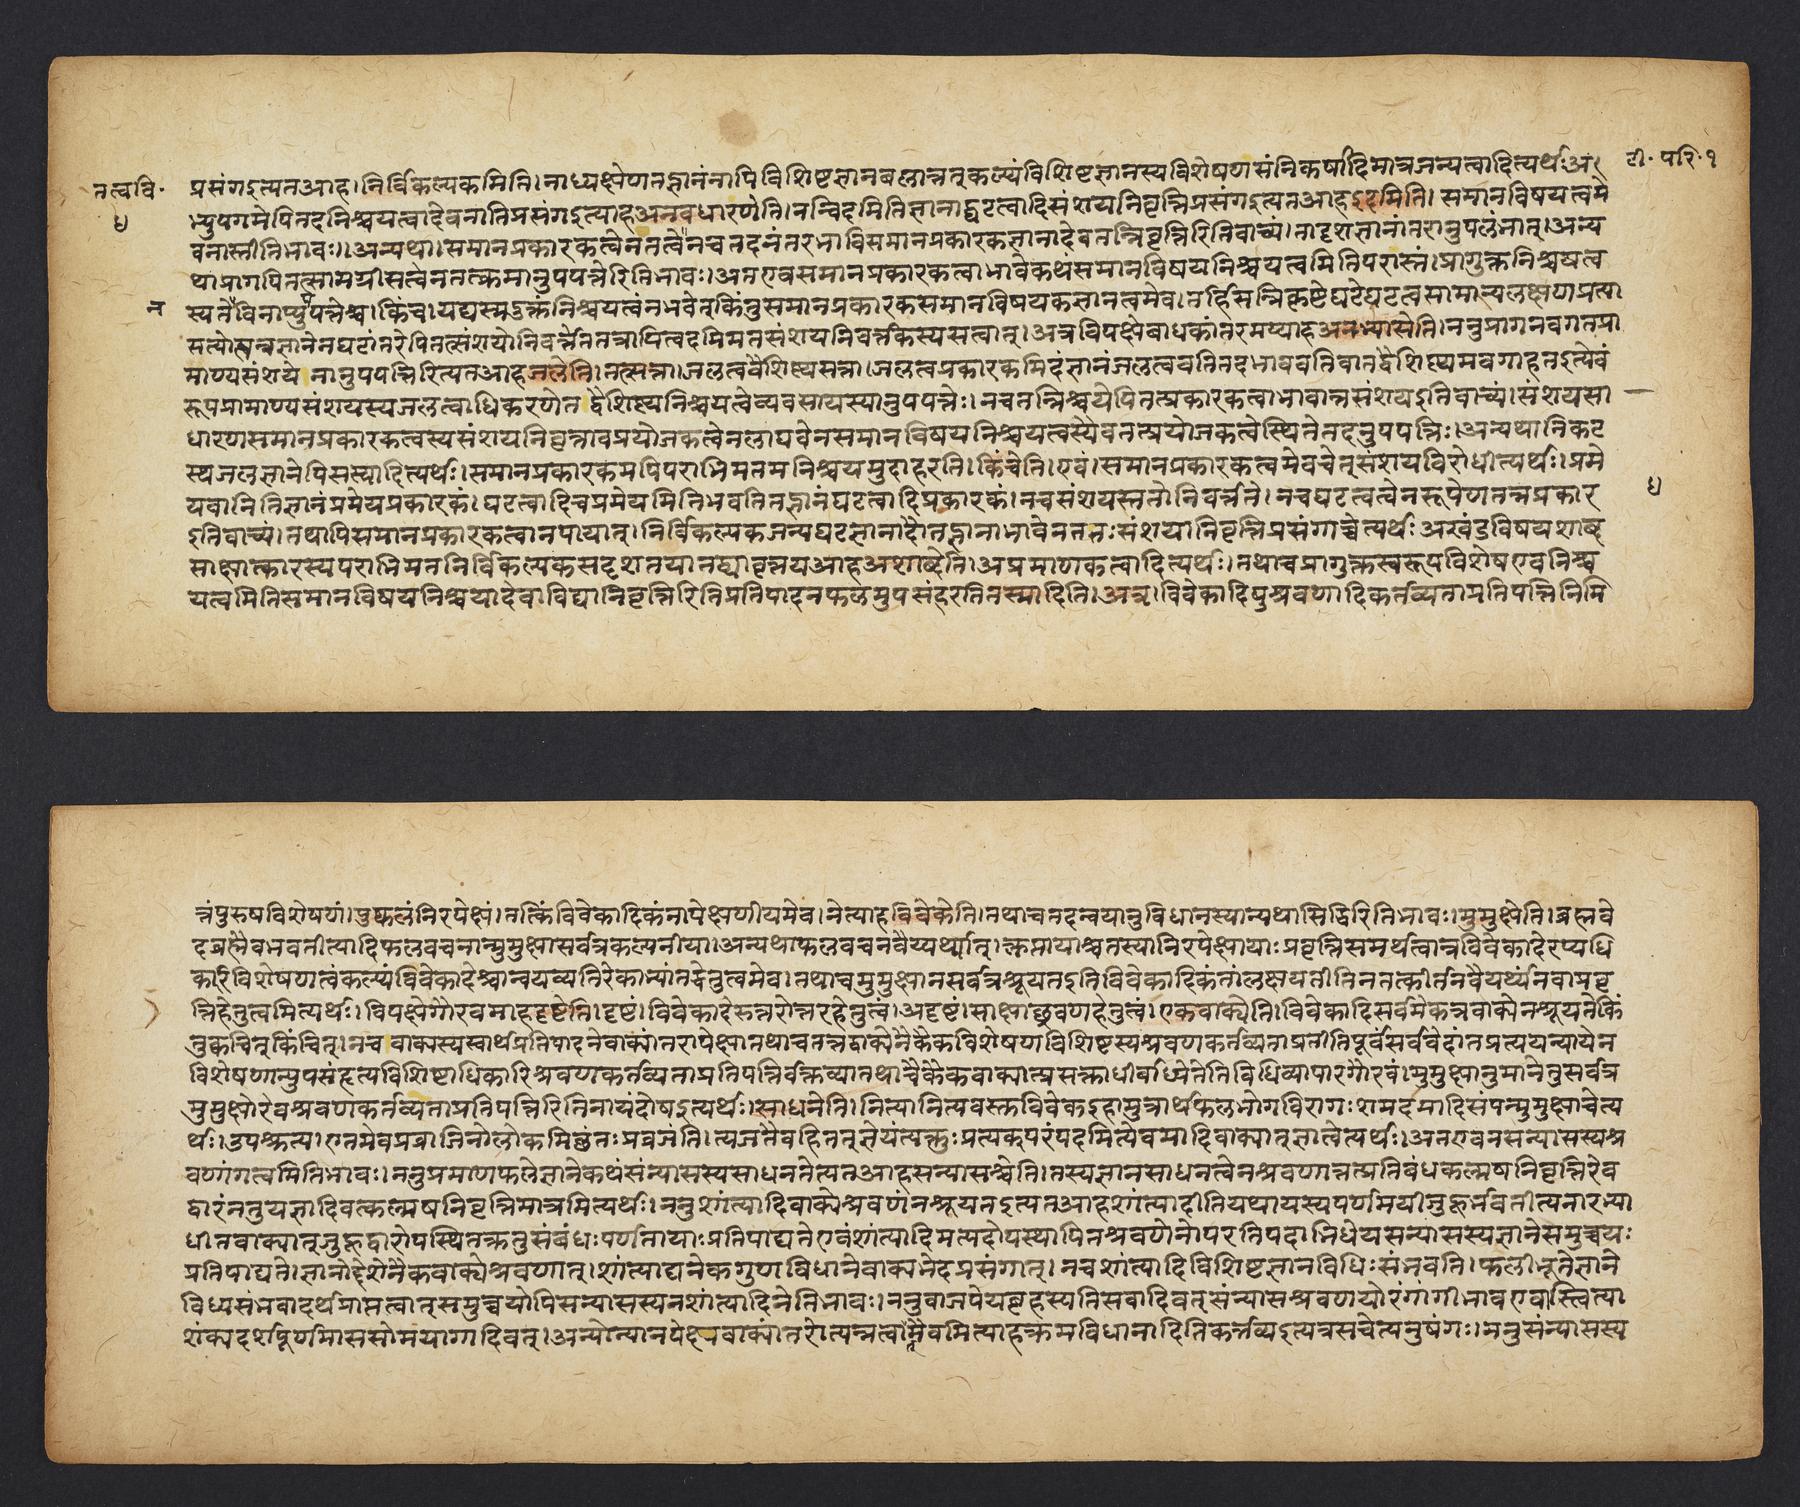 तत्ववि. प्रसंगइत्यतआह।निर्विकल्पकमिति।नाध्यक्षेणतज्ज्ञानंनापिविशिष्टज्ञानबलात्तत्कल्प्यंविशिष्टज्ञानस्यविशेषणसंनिकर्षादिमात्रजन्यत्वादित्यर्थःअ टी. परि.१
५ भ्युपगमेपितदनिश्चयत्वादेवनातिप्रसंगइत्याहअनवधारणेति।नन्विदमितिज्ञानाद्घटत्वादिसंशयनिवृत्तिप्रसंगइत्यतआहइदमिति।समानविषयत्वमे
वनास्तीतिभावः।अन्यथा।समानप्रकारकत्वेनतत्वेनचतदनंतरभाविसमानप्रकारकज्ञानादेवतन्निवृत्तिरितिवाच्यं।तादृशज्ञानांतरानुपलंभात्।अन्य
थाप्रागपितत्सामग्रीसत्वेनतत्क्रमानुपपत्तेरितिभावः।अतएवसमानप्रकारकत्वाभावेकथंसमानविषयनिश्चयत्वमितिपरास्तं।प्रागुक्तनिश्चयत्व
त स्यतेविनाप्युपपत्तेश्च।किंच।यद्यस्मदुक्तंनिश्चयत्वंनभवेत्किंतुसमानप्रकारकसमानविषयकज्ञानत्वमेव।तर्हिसन्निकृष्टेघटेघटत्वसामान्यलक्षणाप्रत्या
सत्योत्पन्नज्ञानेनघटांतरेपितत्संशयोनिवर्त्तेततत्रापित्वदभिमतसंशयनिवर्त्तकस्यसत्वात्।अत्रविपक्षेबाधकांतरमप्याहअनभ्यासेति।ननुप्रागनवगतप्रा
माण्यसंशये नानुपपत्तिरित्यतआहजलेति।तत्सत्ता।जलत्ववैशिष्ट्यसत्ता।जलत्वप्रकारकमिदंज्ञानंजलत्ववतितदभाववतिवातद्वैशिष्ट्यमवगाहतइत्येवं
रूपप्रामाण्यसंशयस्यजलत्वाधिकरणेत द्वैशिष्ट्यनिश्चयत्वेव्यवसायस्यानुपपत्तेः।नचतन्निश्चयेपितत्प्रकारकत्वाभावान्नसंशयइतिवाच्यं।संशयसा
धारणसमानप्रकारकत्वस्यसंशयनिवृत्तावप्रयोजकत्वेनलाघवेनसमानविषयनिश्चयत्वस्यैवतत्प्रयोजकत्वेस्थितेतदनुपपत्तिः।अन्यथानिकट
स्थजलज्ञानेपिसस्यादित्यर्थः।समानप्रकारकमपिपराभिमतमनिश्चयमुदाहरति।किंचेति।एवं।समानप्रकारकत्वमेवचेत्संशयविरोधीत्यर्थः।प्रमे
यवानितिज्ञानंप्रमेयप्रकारकं।घटत्वादिचप्रमेयमितिभवतितज्ज्ञानंघटत्वादिप्रकारकं।नचसंशयस्ततोनिवर्त्तते।नचघटत्वत्वेनरूपेणतन्नप्रकार ५
इतिवाच्यं।तथापिसमानप्रकारकत्वानपायात्।निर्विकल्पकजन्यघटज्ञानादौतज्ज्ञानाभावेनततःसंशयानिवृत्तिप्रसंगाच्चेत्यर्थःअखंडविषयशाब्द
साक्षात्कारस्यपराभिमतनिर्विकल्पकसदृशतयातद्व्यावृत्तयआहअशाब्देति।अप्रमाणकत्वादित्यर्थः।तथाचप्रागुक्तस्वरूपविशेषएवनिश्च
यत्वमितिसमानविषयनिश्चयादेवाविद्यानिवृत्तिरितिप्रतिपादनफलमुपसंहरतितस्मादिति।अत्र।विवेकादिषुश्रवणादिकर्तव्यताप्रतिपत्तिनिमि
त्तंपुरुषविशेषणं।पुष्कलंनिरपेक्षं।तत्किंविवेकादिकंनापेक्षणीयमेव।नेत्याहविवेकेति।तथाचतदन्वयानुविधानस्यान्यथासिद्धिरितिभावः।मुमुक्षेति।ब्रह्मवे
दब्रह्मैवभवतीत्यादिफलवचनान्मुमुक्षासर्वत्रकल्पनीया।अन्यथाफलवचनवैय्यर्थ्यात्।क्लृप्तायाश्चतस्यानिरपेक्षायाःप्रवृत्तिसमर्थत्वान्नविवेकादेरप्यधि
कारिविशेषणत्वंकल्प्यंविवेकादेश्चान्वयव्यतिरेकाभ्यांतद्धेतुत्वमेव।तथाचमुमुक्षानसर्वत्रश्रूयतइतिविवेकादिकंतांलक्षयतीतिनतत्कीर्तनवैयर्थ्यंनवाप्रवृ
त्तिहेतुत्वमित्यर्थः।विपक्षेगौरवमाहदृष्टेति।दृष्टं।विवेकादेरुत्तरोत्तरहेतुत्वं।अदृष्टं।साक्षाच्छ्रवणहेतुत्वं।एकवाक्येति।विवेकादिसर्वमेकत्रवाक्येनश्रूयतेकिं
तुक्वचित्किंचित्।नच वाक्यस्यस्वार्थप्रतिपादनेवाक्यांतरापेक्षातथाचतत्तद्वाक्येनैकैकविशेषणविशिष्टस्यश्रवणकर्तव्यताप्रतीतिपूर्वंसर्ववेदांतप्रत्ययन्यायेन
विशेषणान्युपसंहृत्यविशिष्टाधिकारिश्रवणकर्तव्यताप्रतिपत्तिर्वक्तव्यातथाचैकैकवाक्यात्प्रसक्ताधीर्बाध्येतेतिविधिव्यापारगौरवं।मुमुक्षानुमानेतुसर्वत्र
मुमुक्षोरेवश्रवणकर्तव्यताप्रतिपत्तिरितिनायंदोषइत्यर्थः।साधनेति।नित्यानित्यवस्तुविवेकइहामुत्रार्थफलभोगविरागःशमदमादिसंपन्मुमुक्षाचेत्य
र्थः।उपक्रम्य।एतमेवप्रव्राजिनोलोकमिच्छंतःप्रव्रजंति।त्यजतैवहितत्ज्ञेयंत्यक्तुःप्रत्यक्परंपदमित्येवमादिवाक्यात्ज्ञात्वेत्यर्थः।अतएवनसन्यासस्यश्र
वणांगत्वमितिभावः।ननुप्रमाणफलेज्ञानेकथंसंन्यासस्यसाधनतेत्यतआहसन्यासश्चेति।तस्यज्ञानसाधनत्वेनश्रवणात्तत्प्रतिबंधकल्मषनिवृत्तिरेव
द्वारंनतुयज्ञादिवत्कल्मषनिवृत्तिमात्रमित्यर्थः।ननुशांत्यादिवाक्येश्रवणंनश्रूयतइत्यतआहशांत्यादीतियथायस्यपर्णमयीजुहूर्भवतीत्यनारभ्या
धीतवाक्यात्जुहूद्वारोपस्थितक्रतुसंबंधःपर्णतायाःप्रतिपाद्यतेएवंशांत्यादिमत्पदोपस्थापितश्रवणेनोपरतिपदाभिधेयसन्यासस्यज्ञानेसमुच्चयः
प्रतिपाद्यते।ज्ञानोद्देशेनैकवाक्येश्रवणात्।शांत्याद्यनेकगुणविधानेवाक्यभेदप्रसंगात्।नचशांत्यादिविशिष्टज्ञानविधिःसंभवति।फलीभूतेज्ञाने
विध्यसंभवादर्थप्राप्तत्वात्समुच्चयोपिसन्यासस्यनशांत्यादिनेतिभावः।ननुवाजपेयबृहस्पतिसवादिवत्संन्यासश्रवणयोरंगांगीभावएवास्त्वित्या
शंक्यदर्शपूर्णमाससोमयागादिवत्।अन्योन्यानपेक्षवाक्यांतरोत्पन्नत्वान्मैवमित्याहक्रमविधानादितिकर्त्तव्यइत्यत्रसचेत्यनुषंगः।ननुसंन्यासस्य